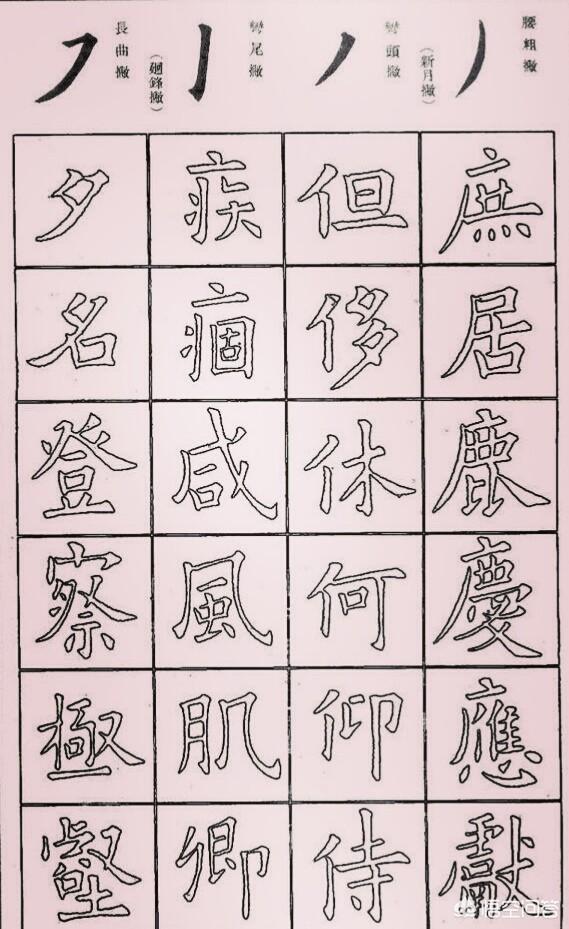 腰粗撇
(新月撇)
庶
居
鹿
慶
應
獻
彎頭撇
但
侈
休
何
仰
侍
彎尾撇
(廻鋒撇)
疾
痼
咸
風
肌
卿
長曲撇
夕
名
登
察
極
壑
悟空问答